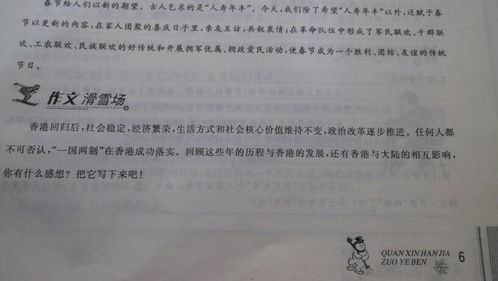 春节给人们以新的期望。古人乞求的是“人寿年丰”。今天，我们除了希望“人寿年丰”以外，还赋予春
节以更新的内容，在家人团聚的喜庆日子里，亲友互访，共叙衷情；在革命队伍中形成了军民联欢、干群联
欢、工农联欢、民族联欢的好传统和开展拥军优属、拥政爱民活动，使春节成为一个胜利、团结、友谊的传统
节日。
作文 滑雪场
香港回归后，社会稳定，经济繁荣，生活方式和社会核心价值维持不变，政治改革逐步推进。任何人都
不可否认，“一国两制”在香港成功落实。回顾这些年的历程与香港的发展，还有香港与大陆的相互影响，
你有什么感想？把它写下来吧！
QUAN XIN HAN JIA
ZUO YE BEN
6